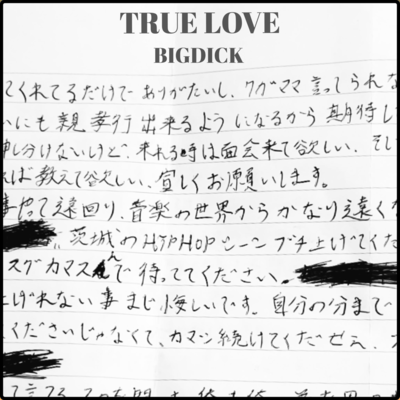 TRUE LOVE
BIGDICK
てくれてるだけで ありがたいし、ワガママ 言ってられな
いにも 親孝行 出来るようになるから 期待し
申し分けないけど、来れる時は面会来て欲しい、そし
れば 教えて欲しい、宜しくお願いします。
事やって遠回り、音楽の世界から かなり遠くな
茨城のHIPHOPシーン ブチ上げてくだ
スグカマスんで 待っててください。
上げれない事 まじ悔しいです。自分の分まで
くださいじゃなくて、カマシ続けてくださん。